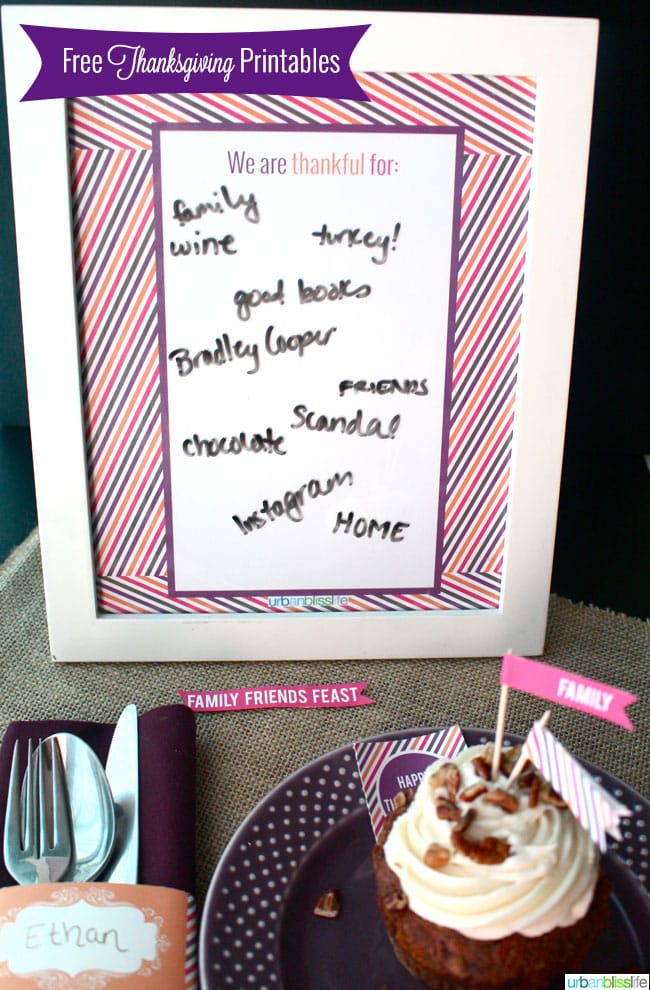 Free Thanksgiving Printables
We are thankful for:
family
wine
turkey!
good books
Bradley Cooper
FRIENDS
Scandal
chocolate
Instagram
HOME
urbanblisslife
FAMILY FRIENDS FEAST
FAMILY
HAPPY
Ethan
urbanblisslife